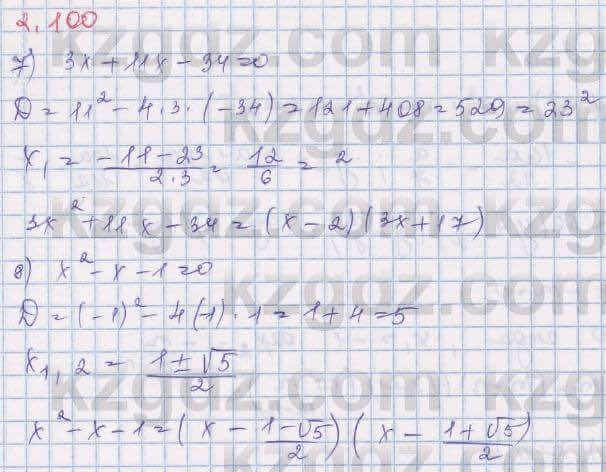 2.100
7) 3x+11x-34=0
D=11²-4·3·(-34)=121+408=529=23²
x₁=(-11-23)/(2·3)=12/6=2
3x²+11x-34=(x-2)(3x+17)
8) x²-x-1=0
D=(-1)²-4(-1)·1=1+4=5
x₁,₂=(1±√5)/2
x²-x-1=(x-(1-√5)/2)(x-(1+√5)/2)
kzgdz.com